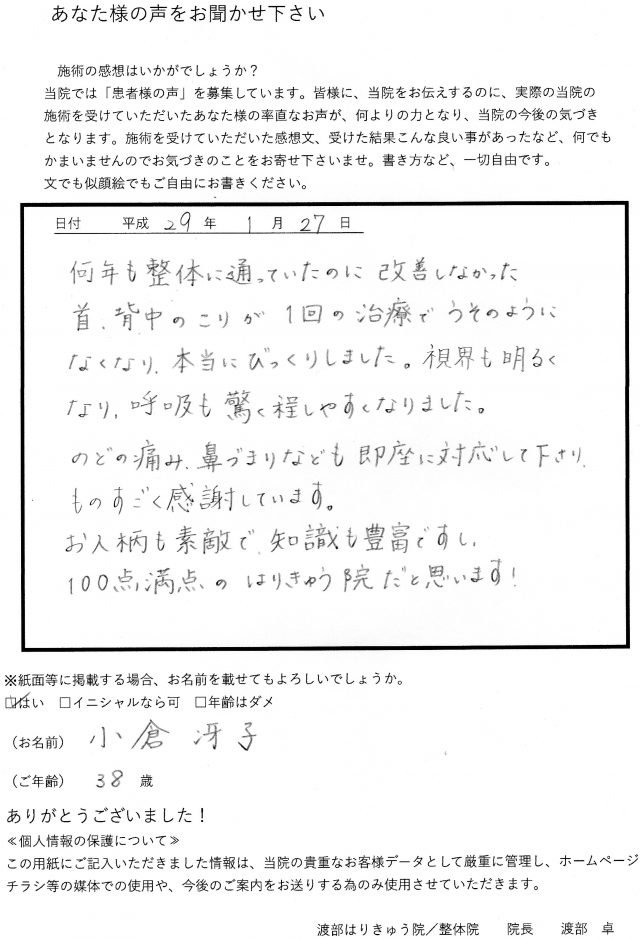 あなた様の声をお聞かせ下さい
施術の感想はいかがでしょうか？
当院では「患者様の声」を募集しています。皆様に、当院をお伝えするのに、実際の当院の
施術を受けていただいたあなた様の率直なお声が、何よりの力となり、当院の今後の気づき
となります。施術を受けていただいた感想文、受けた結果こんな良い事があったなど、何でも
かまいませんのでお気づきのことをお寄せ下さいませ。書き方など、一切自由です。
文でも似顔絵でもご自由にお書きください。
日付 平成 29 年 1 月 27 日
何年も整体に通っていたのに 改善しなかった
首、背中のこりが 1回の治療で うそのように
なくなり、本当にびっくりしました。視界も明るく
なり、呼吸も驚く程しやすくなりました。
のどの痛み、鼻づまりなども 即座に対応して下さり、
ものすごく感謝しています。
お人柄も素敵で、知識も豊富ですし、
100点満点の はりきゅう院だと思います！
※紙面等に掲載する場合、お名前を載せてもよろしいでしょうか。
☑はい □イニシャルなら可 □年齢はダメ
（お名前） 小倉 冴子
（ご年齢） 38 歳
ありがとうございました！
≪個人情報の保護について≫
この用紙にご記入いただきました情報は、当院の貴重なお客様データとして厳重に管理し、ホームページ
チラシ等の媒体での使用や、今後のご案内をお送りする為のみ使用させていただきます。
渡部はりきゅう院／整体院 院長 渡部 卓